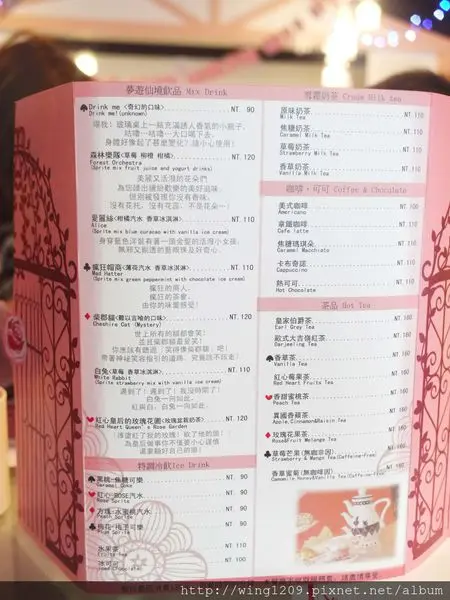 夢遊仙境飲品 Mix Drink
Drink me <奇幻的口味> NT 90
Drink me!(unknown)
喝我!玻璃桌上一瓶充滿誘人香氣的小瓶子,
咕嚕…咕嚕…大口喝下去,
身體好像起了甚麼變化?請小心使用!
森林樂隊(草莓 柳橙 柑橘) NT 120
Forest Orchestra
(Sprite mix fruit juice and yogurt drinks)
美麗又活潑的花朵們
沒有花托,沒有花蕊,不是花朵…!
愛麗絲<柑橘汽水 香草冰淇淋> NT 110
Alice
(Sprite mix blue curacao with vanilla ice cream)
身穿藍色洋裝有著一頭金髮的活潑小女孩,
瘋狂帽商<薄荷汽水 香草冰淇淋> NT 110
Mad Hatter
(Sprite mix green peppermint with chocolate ice cream)
瘋狂的商人,
瘋狂的茶會,
由你的味蕾感受!
柴郡貓<難以言喻的口味> NT 120
Cheshire Cat (Mystery)
世上所有的貓都會笑!
並且柴郡貓最愛笑!
你應該有聽過「笑得像柴郡貓」吧!
白兔(草莓 香草冰淇淋) NT 110
White Rabbit
(Sprite strawberry mix with vanilla ice cream)
遲到了!遲到了!我沒時間了!
白兔一向如此,
紅心皇后的玫瑰花園<玫瑰盆栽奶茶> NT 120
Red Heart Queen's Rose Garden
涉邊紅了我的玫瑰!砍了她的頭!
特調冷飲Ice Drink
黑桃-焦糖可樂 NT 90
Caramel Coke
紅心-ROSE汽水 NT 90
Rose Sprite
方塊-水蜜桃汽水 NT 90
Peach Sprite
梅花-梅子可樂 NT 90
Plum Sprite
水果茶 NT 110
Fruits Tea
冰可可 NT 100
Iced Chocolate
雪露奶茶 Cream Milk tea
原味奶茶 NT 110
Milk Tea
焦糖奶茶 NT 110
Caramel Milk Tea
草莓奶茶 NT 110
Strawberry Milk Tea
香草奶茶 NT 110
Vanilla Milk Tea
咖啡,可可 Coffee & Chocolate
美式咖啡 NT 100
Americano
拿鐵咖啡 NT 110
Cafe latte
焦糖瑪琪朵 NT 110
Caramel Macchiato
卡布奇諾 NT 110
Cappuccino
熱可可 NT 110
Hot Chocolate
茶品 Hot Tea
皇家伯爵茶 NT 160
Earl Grey Tea
歐式大吉嶺紅茶 NT 160
Darjeeling Tea
香草茶 NT 160
Vanilla Tea
紅心莓果茶 NT 160
Red Heart Fruits Tea
香甜蜜桃茶 NT 160
Peach Tea
異國香蘋茶 NT 160
Apple,Cinnamon&Raisin Tea
玫瑰花果茶 NT 160
Rose&Fruit Melange Tea
草莓芒果(無咖啡因) NT 160
Strawberry & Mango Tea(Caffeine-Free)
香草蜜菊(無咖啡因) NT 160
Camomile Honey&Vanilla Tea(Caffeine-Free)
http://wing1209.pixnet.net/album